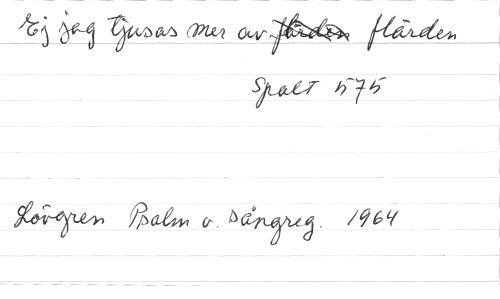 Ej jag tjusas mer av flärden
Spalt 575
Lövgren Psalm o. sångreg. 1964